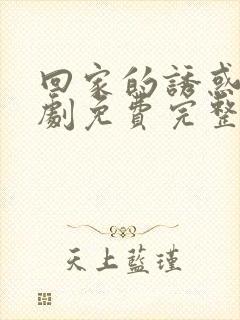 回家的誘惑
劇免費完整
天上藍瑾